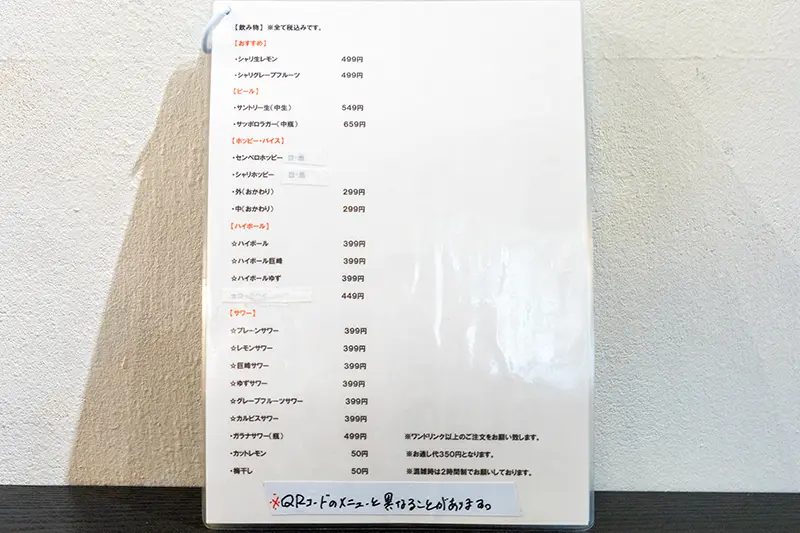 【飲み物】※全て税込みです。
【おすすめ】
・シャリ生レモン 499円
・シャリグレープフルーツ 499円
【ビール】
・サントリー生(中生) 549円
・サッポロラガー(中瓶) 659円
【ホッピー・バイス】
・センベロホッピー
・シャリホッピー
・外(おかわり) 299円
・中(おかわり) 299円
【ハイボール】
☆ハイボール 399円
☆ハイボール巨峰 399円
☆ハイボールゆず 399円
449円
【サワー】
☆プレーンサワー 399円
☆レモンサワー 399円
☆巨峰サワー 399円
☆ゆずサワー 399円
☆グレープフルーツサワー 399円
☆カルピスサワー 399円
・ガラナサワー(瓶) 499円 ※ワンドリンク以上のご注文をお願い致します。
・カットレモン 50円 ※お通し代350円となります。
・梅干し 50円 ※混雑時は2時間制でお願いしております。
※QRコードのメニューと異なることがあります。